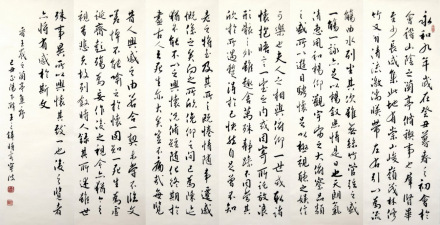 永和九年歲在癸丑暮春之初會於
會稽山陰之蘭亭脩禊事也羣賢畢
至少長咸集此地有崇山峻嶺茂林脩
竹又有清流激湍暎帶左右引以為流
觴曲水列坐其次雖無絲竹管弦之盛
一觴一詠亦足以暢敘幽情是日也天朗氣
清惠風和暢仰觀宇宙之大俯察品類
之盛所以遊目騁懷足以極視聽之娛信
可樂也夫人之相與俯仰一世或取諸
懷抱悟言一室之內或因寄所託放浪
形骸之外雖趣舍萬殊靜躁不同當其
欣於所遇暫得於己快然自足不知
老之將至及其所之既惓情隨事遷感
慨係之矣向之所欣俛仰之間已為陳迹
猶不能不以之興懷況脩短隨化終期於
盡古人云死生亦大矣豈不痛哉每覽
昔人興感之由若合一契未嘗不臨文
嗟悼不能喻之於懷固知一死生為虛
誕齊彭殤為妄作後之視今亦猶今之
視昔悲夫故列敘時人錄其所述雖世
殊事異所以興懷其致一也後之覽者
亦將有感於斯文
晉王羲之蘭亭集序